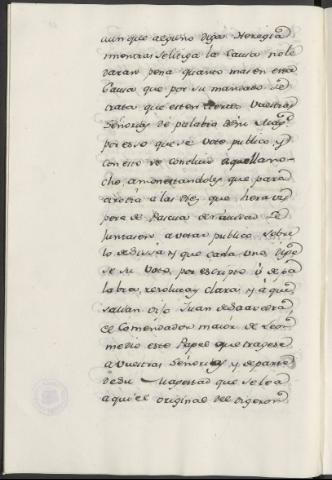 aunque alguno diga Heregia
mientras se litiga la Causa no le
daran pena quanto mas en esta
Causa que por su mandado se
trata que esten ciertos Vuestras
Señorias de palabra de su Mag.
por esso que se vote publico, y
con esto se concluio aquella no-
che, amonestandoles que para
otro dia a las diez, que hera vis
pera de Pascua de
juntasen a votar publico sobre
lo de Sissa, y que cada uno diga
se su Voto, por escripto ó de pa
labra, resoluta, y clara, y a que
salian dijo Juan de Saavedra,
el Comendador maior de Leon
me dio este Papel que tragese
a Vuestras Señorias, y de parte
de Su Magestad que se lea
aqui el original del digeron